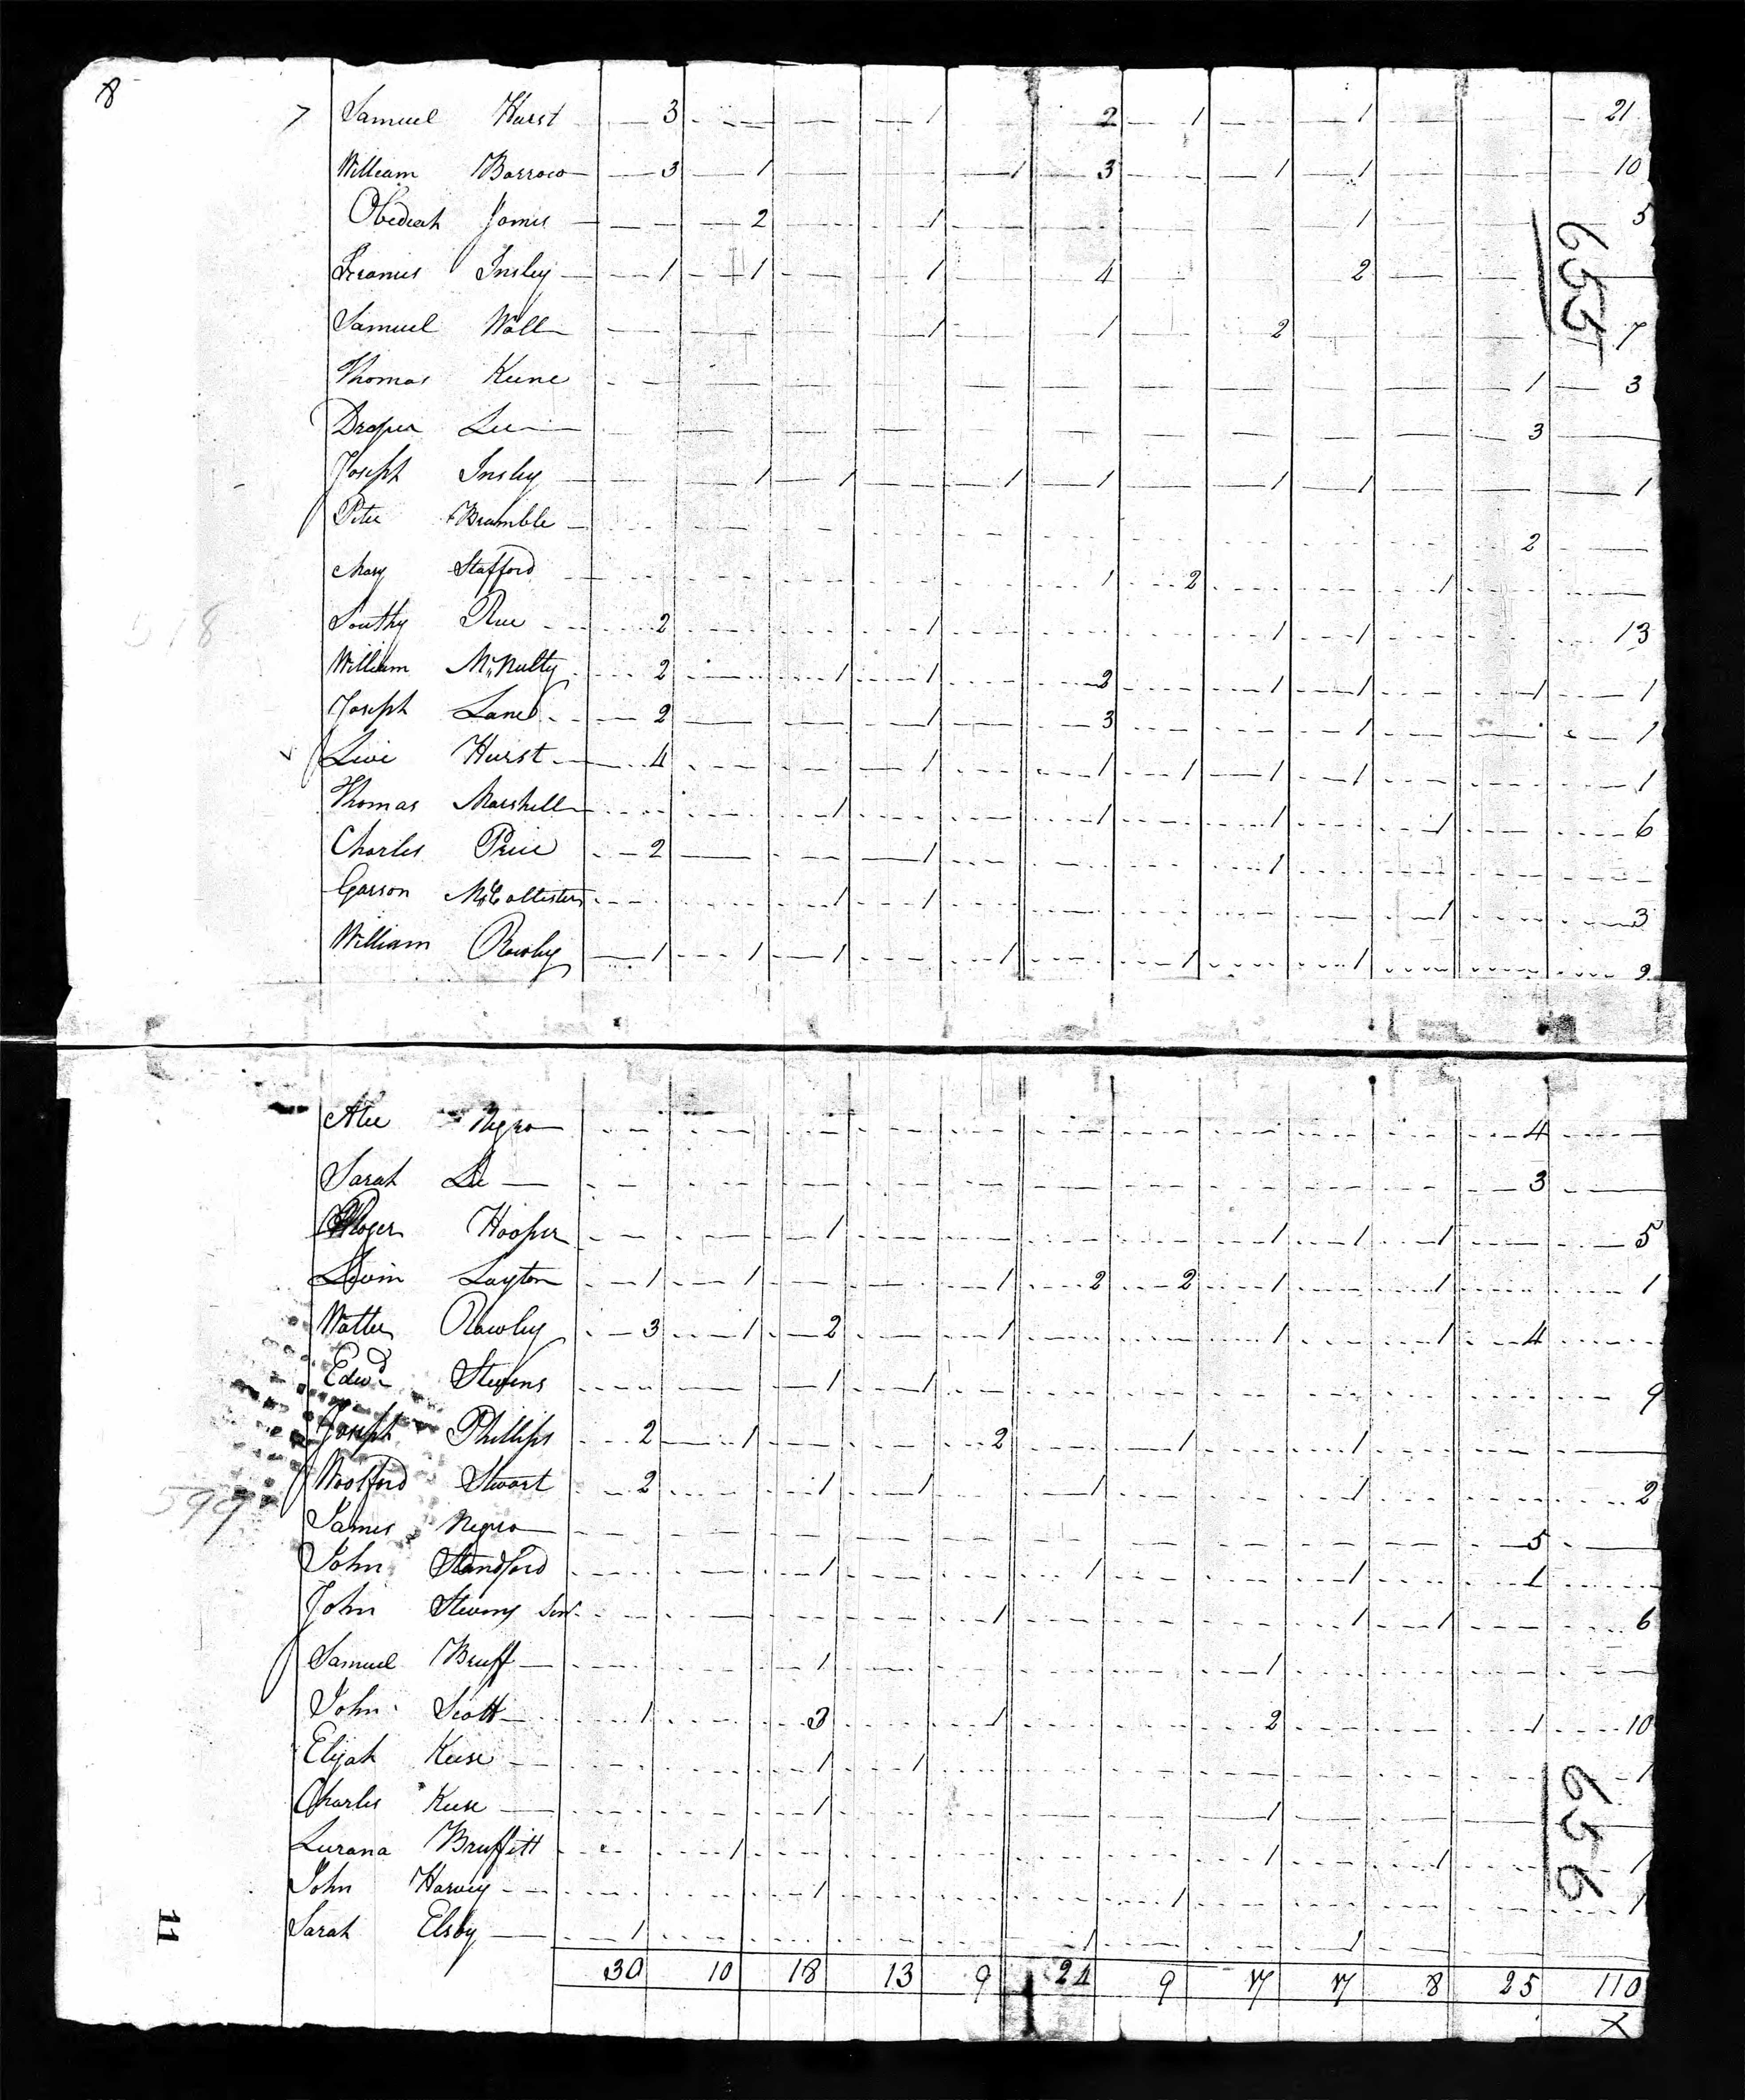 8
Samuel Hurst 3 1 2 1 1 21
William Barrow 3 1 1 3 1 1 10
Obediah Jones 2 1 1 5
655
Insley 1 1 1 4 2
Samuel Wall 1 1 2 7
Thomas Keene 1 3
Draper Lee 3
Joseph Insley 1 1 1 1 1 1 1
Peter Bramble 2
Mary Stafford 1 2 1
Southy Rue 2 1 1 1 13
518
William McNulty 2 1 1 2 1 1 1 1
Joseph Lane 2 1 3 1 1
Levi Hurst 4 1 1 1 1 1 1
Thomas Marshall 1 1 1 1 6
Charles Price 2 1 1
Garson McCollister 1 1 1 3
William Rawley 1 1 1 1 1 1 9
Negro 4
Sarah 3
Roger Hooper 1 1 1 1 5
Levin Layton 1 1 1 2 2 1 1 1
Walter Rawley 3 1 2 1 1 1 4
Edwd Stevens 1 1 9
Joseph Phillips 2 1 2 1 1
Woolford Stewart 2 1 1 1 1 2
599
James Negro 5
John Standford 1 1 1 1
John Stevens Senr 1 1 1 6
Samuel Bruff 1 1
John Scott 1 3 1 2 1 10
Elijah Keese 1 1 1
Charles Keese 1 1
656
Lurana Bruffitt 1 1 1 1
John Harvey 1 1 1
Sarah Elsby 1 1 1
11
30 10 18 13 9 24 9 17 17 8 25 110
X